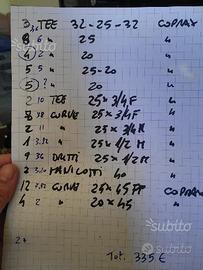 TEE 32-25-32 COPRAX
6 " 25 "
4 " 20 "
5 5 " 25-20 "
5 ? " 20 "
2 10 TEE 25 x 3/4 F "
38 CURVE 25 x 3/4 F "
2 11 " 25 x 3/4 M "
1 " 25 x 1/2 M "
9 36 DRITTI 25 x 1/2 M "
MANICOTTI 40 "
12 CURVE 25 x 45 FF COPRAX
4 2 " 20 x 45 "
Tot. 335 €
subito